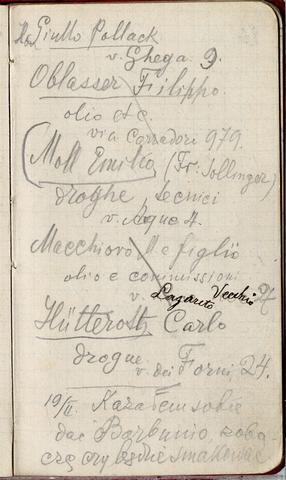 Giullo Pollack
v. Ghega 9.
Oblasser Filippo.
olio etc.
via Carradori 979.
(Moll Emilio (Fr: Jollinger)
droghe, tecnici
v. Acque 4.
Macchioro, e figlio
olio e commissioni
v. Lazareto Vecchio 24
Hütteroth, Carlo
drogue.
v. dei Forni, 24.
19/II. Kazałem sobie
dać Barbunio, zoba-
czę czy będzie smakować